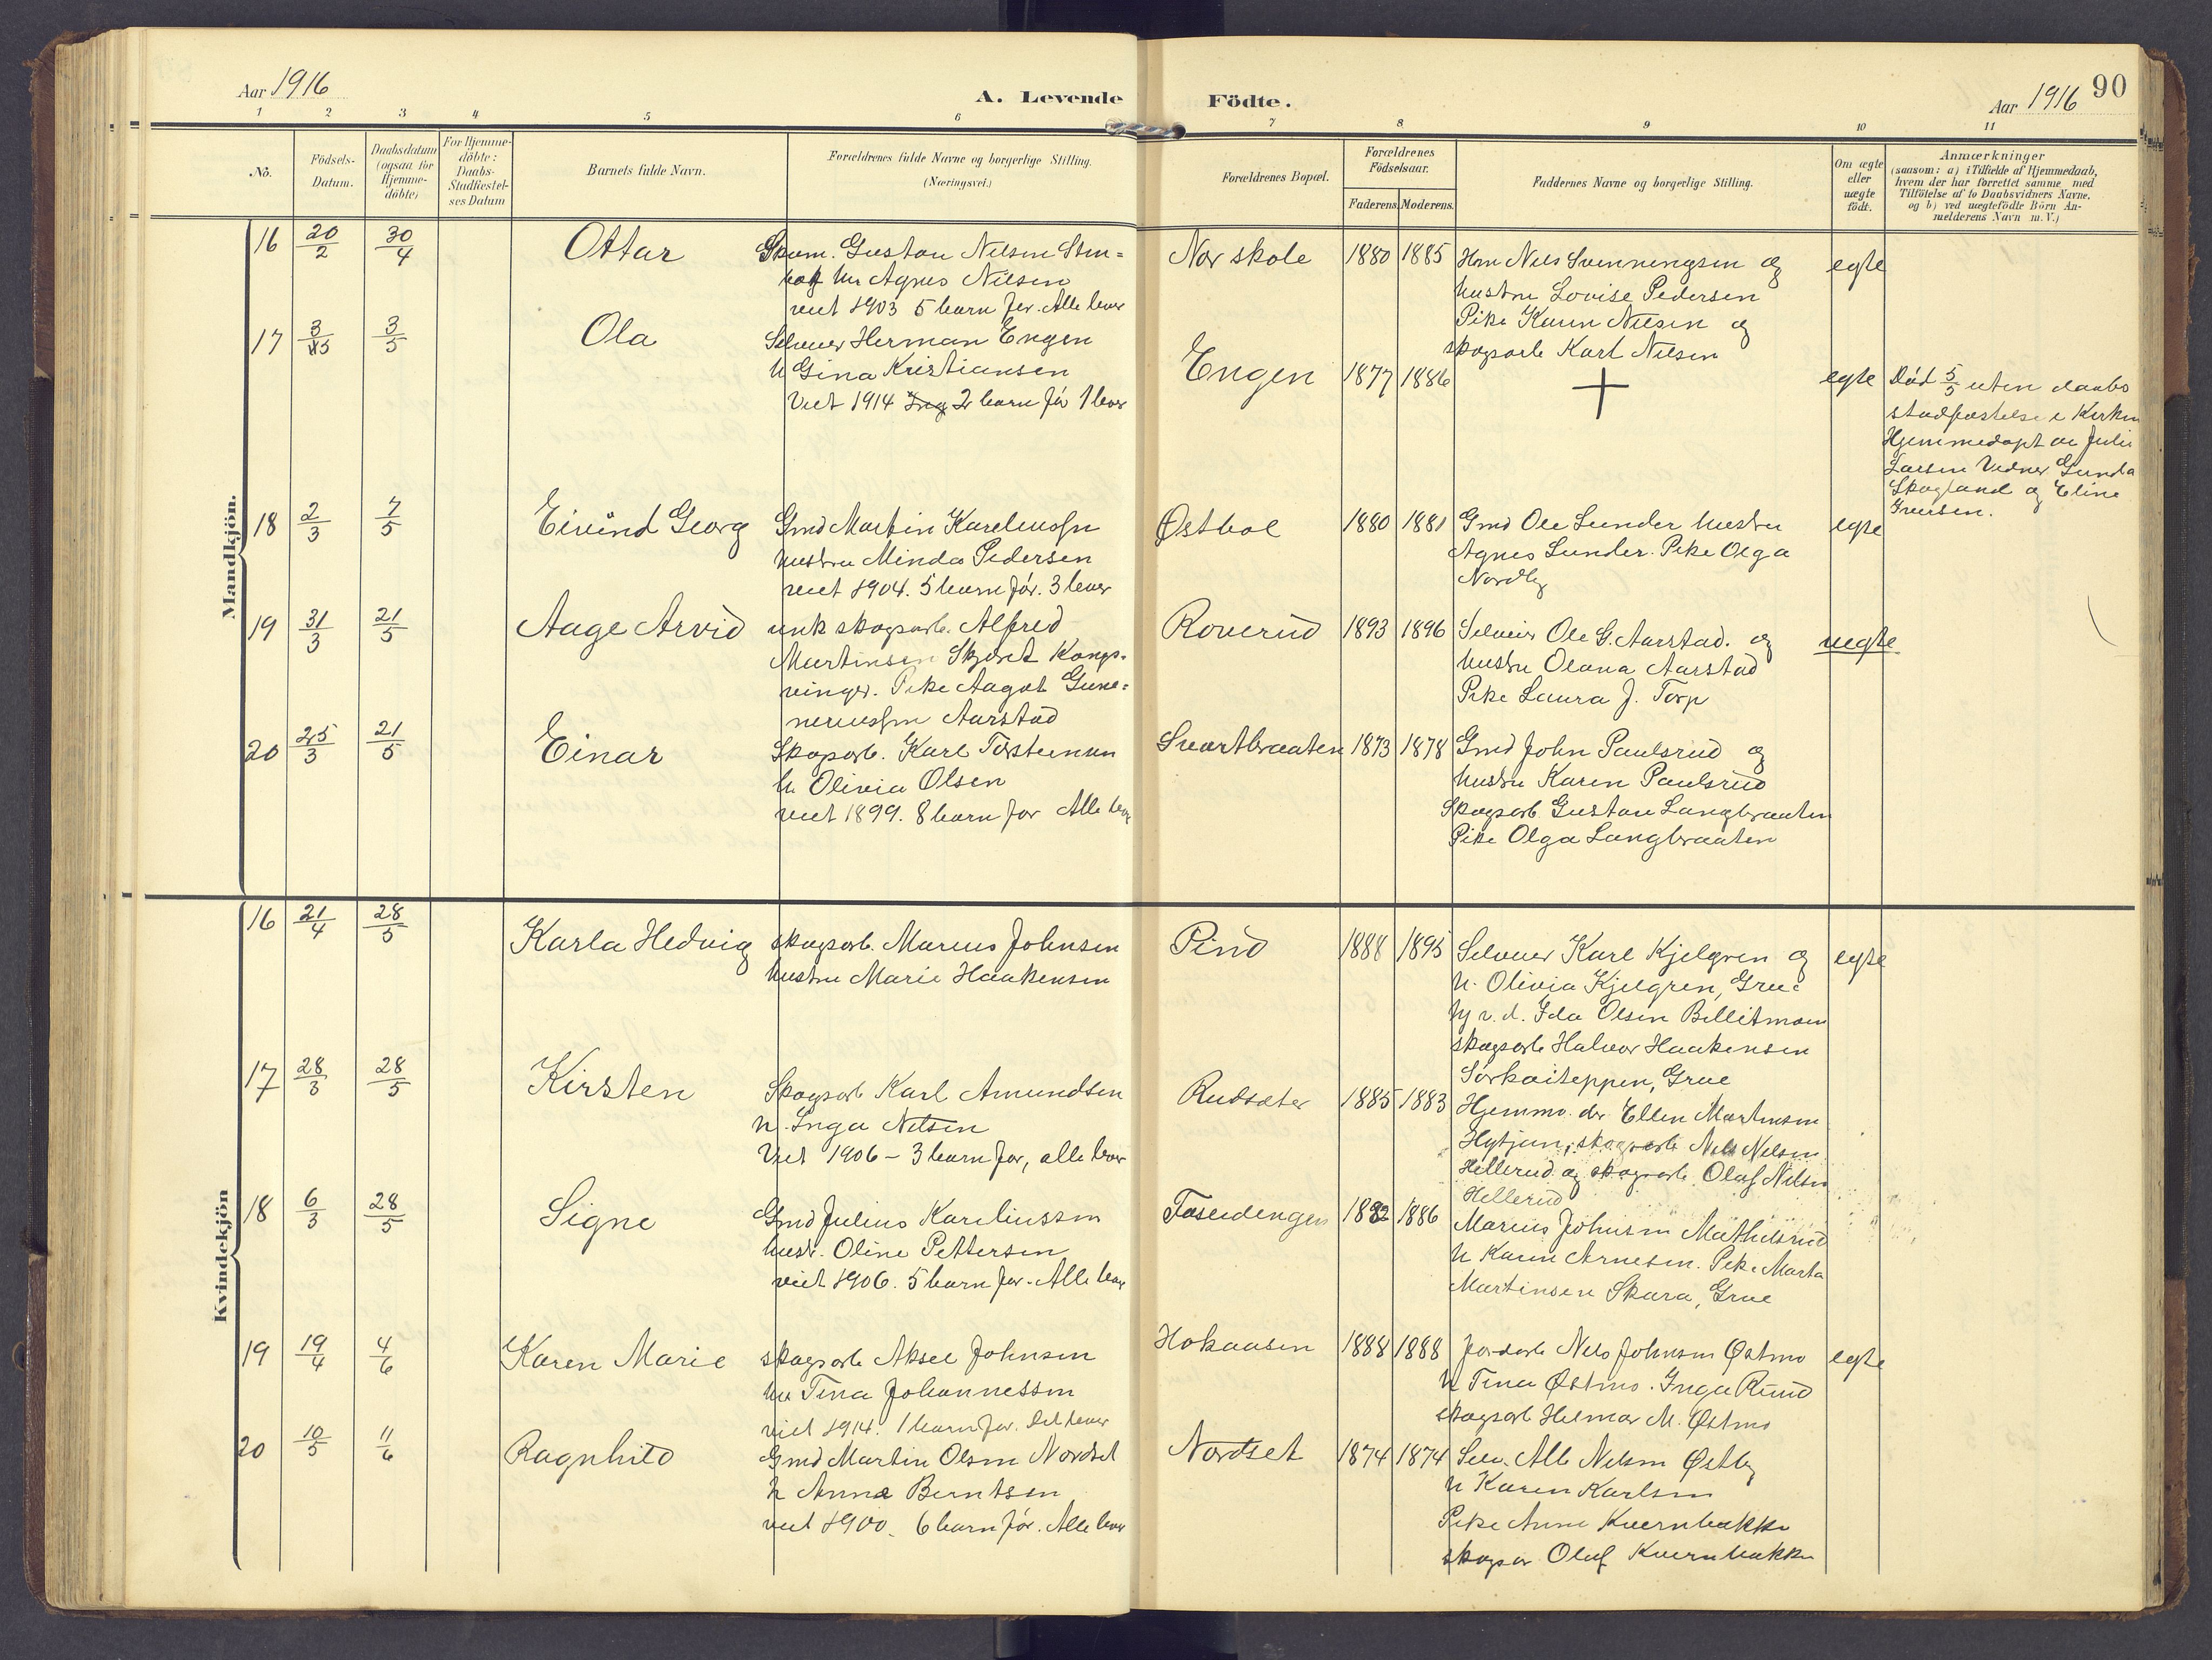 Aar 1916
A. Levende
Födte.
Aar 1916
90
1 2 3 4 5 6 7 8 9 10 11
No.
Födsels-
Datum.
Daabsdatum
(ogsaa for
Hjemme-
döbte)
For Hjemme-
döbte:
Daabs-
Stadfæstel-
ses Datum
Barnets fulde Navn.
Forældrenes fulde Navne og borgerlige Stilling.
(Næringsvei.)
Forældrenes Bopæl.
Forældrenes
Födselsaar.
Faderens. Moderens.
Faddernes Navne og borgerlige Stilling.
Om ægte
eller
uægte
födt.
Anmærkninger
(saasom: a) i Tilfælde af Hjemmedaab,
hvem der har forrettet samme, med
Tilföielse af to Daabsvidners Navne,
og b) ved uægtefödte Börn An-
melderens Navn m.V.)
Mandkjön.
16 20/2 30/4 Ottar
Gustav Nilsen
hu Agnes Nilsen
viet 1903 5 barn før. Alle lever
Nor skole 1880 1885
Nils Svenningsen og
hustru Lovise Pedersen
Pike Karen Nilsen og
skogsarb Karl Nilsen
egte
17 3/5 3/5 Ola
Selveier Herman Engen
h Gina Kristiansen
Viet 1914 2 barn før 1 lever
Engen 1877 1886
+
egte
Död 5/5 uten daabs
stadfæstelse i Kirken
Hjemmedøpt av Julie
Larsen Vidner Gunda
Skogland og Eline
Iversen.
18 2/3 7/5 Eivind Georg
Gmd Martin Kareliussen
hustru Minda Pedersen
viet 1904. 5 barn før. 3 lever
Østbøl 1880 1881
Gmd Ole Sunder hustru
Agnes Sunder. Pike Olga
Nordby
egte
19 31/3 21/5 Aage Arvid
unk skogsarb. Alfred
Martinsen Kongs-
vinger. Pike Aagot
Aarstad
Roverud 1893 1896
Selveier Ole G. Aarstad. og
hustru Olava Aarstad
Pike Laura J. Torp
uegte
20 25/3 21/5 Einar
Skogsarb. Karl Torstensen
h. Olivia Olsen
viet 1899. 8 barn før Alle lever
Svartbraaten 1873 1878
Gmd John Paulsrud og
hustru Karen Paulsrud
Skogsarb Gustav Langbraaten
Pike Olga Langbraaten
Kvindekjön
16 21/4 28/5 Karla Hedvig
skogsarb. Marius Johnsen
hustru Marie Haakensen
Pind 1888 1895
Selveier Karl Kjelgren og
h. Olivia Kjelgren, Grue
Ida Olsen
skogsarb Halvor Haakensen
Grue
egte
17 28/3 28/5 Kirsten
Skogsarb Karl Amundsen
h. Inga Nilsen
Viet 1906 - 3 barn før, alle lever
Rudsæter 1885 1883
Hjemmv. dr Ellen Martinsen
skogsarb Nils Nilsen
Hellerud og skogsarb. Olaf Nilsen
Hellerud
18 6/3 28/5 Signe
Gmd Julius Kareliussen
hustr. Oline Pettersen
viet 1906. 5 barn før. Alle lever
Taseidengen 1882 1886
Marius Johnsen Mathilsrud
h Karen Arnesen. Pike Marta
Martinsen Skara, Grue
19 19/4 4/6 Karen Marie
skogsarb Aksel Johnsen
hu Tina Johannessen
viet 1914. 1 barn før. Det lever
Hokaasen 1888 1888
jordarb Nils Johnsen Østmo
h Tina Østmo. Inga Ruud
skogsarb Helmar M. Østmo
egte
20 10/5 11/6 Ragnhild
Gmd Martin Olsen Nordset
h Anna Berntsen
viet 1900. 6 barn før. Alle lever
Nordset 1874 1874
Selv. Alb Nilsen Østby
h Karen Karlsen
Pike Anne Kvernbakke
skogsar Oluf Kvernbakke